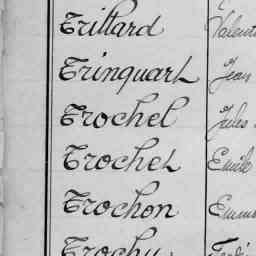 Trillard Valent
Trinquart Jean
Trochel Jules
Trochet Emile
Trochon
Trochu